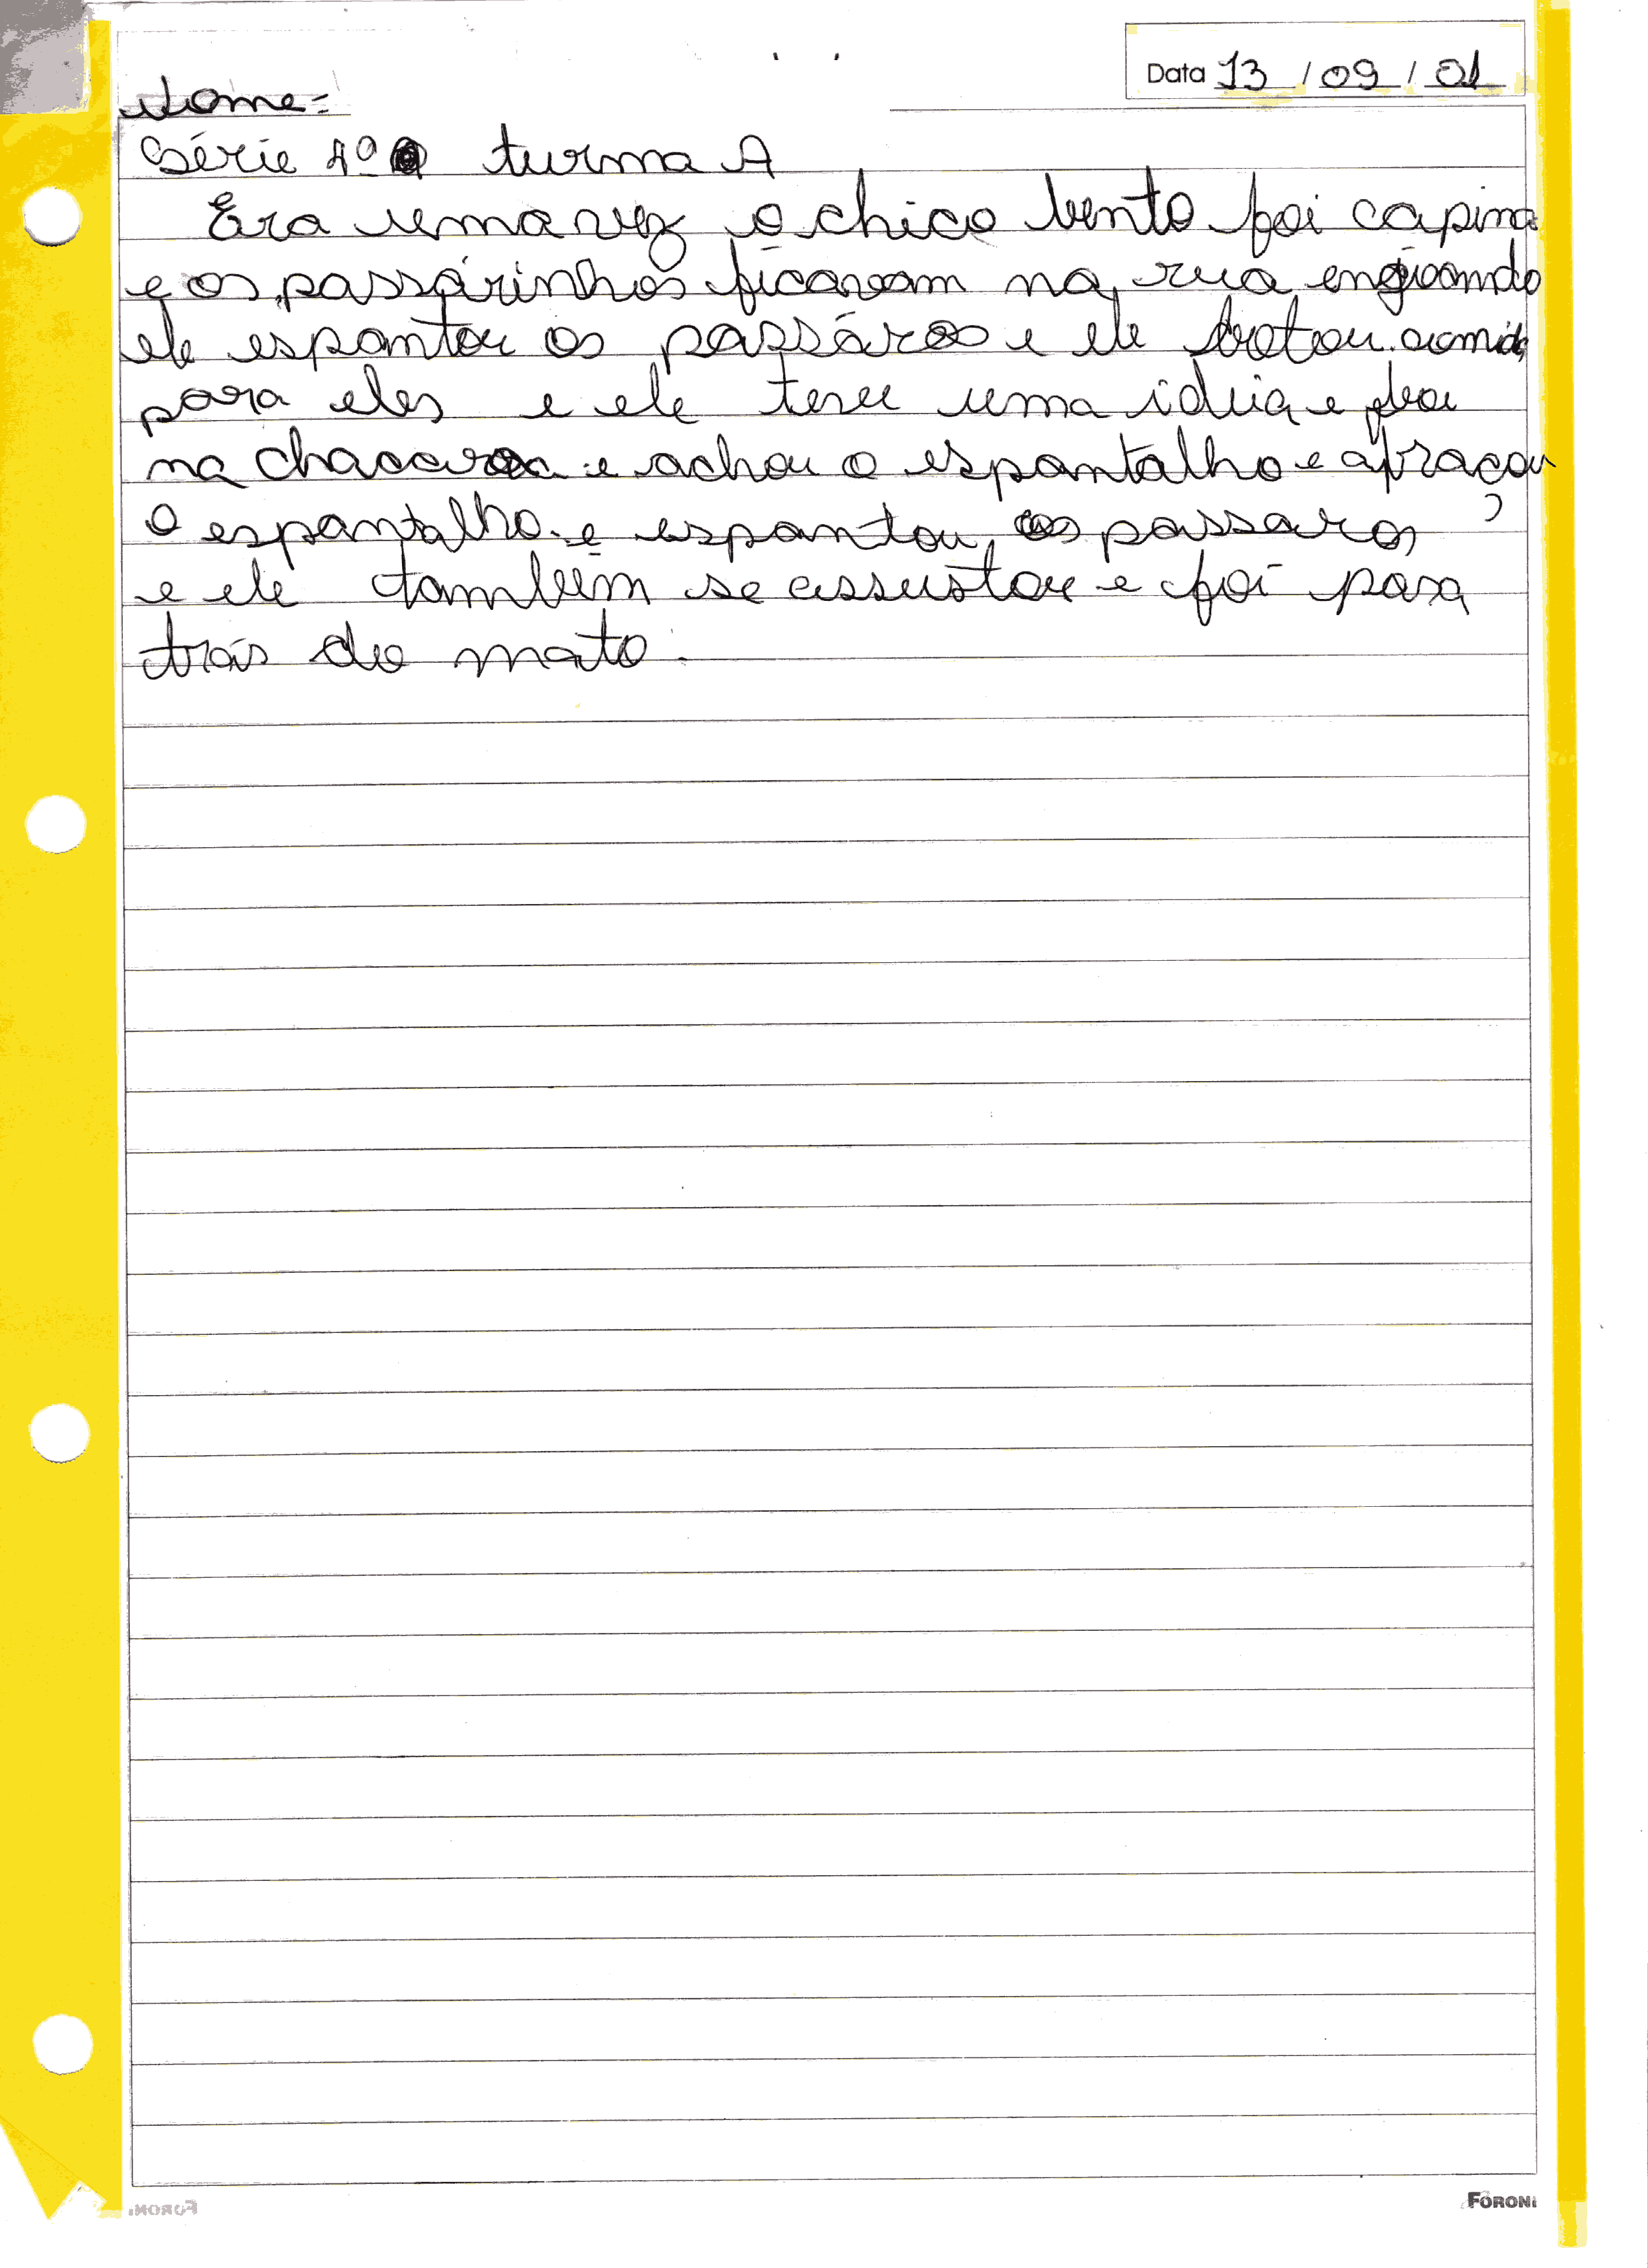 Data 13 / 09 / 01
Nome=
Série 4º turma A
Era uma vez o chico bento foi capina
e os passárinhos ficavam na rua
ele espantou os passáros e ele botou comida
para eles e ele teve uma idéia e foi
na chacara e achou o espantalho e abraçou
o espantalho e espantou os passaros
e ele também se assustou e foi para
trás do mato.
FORONI